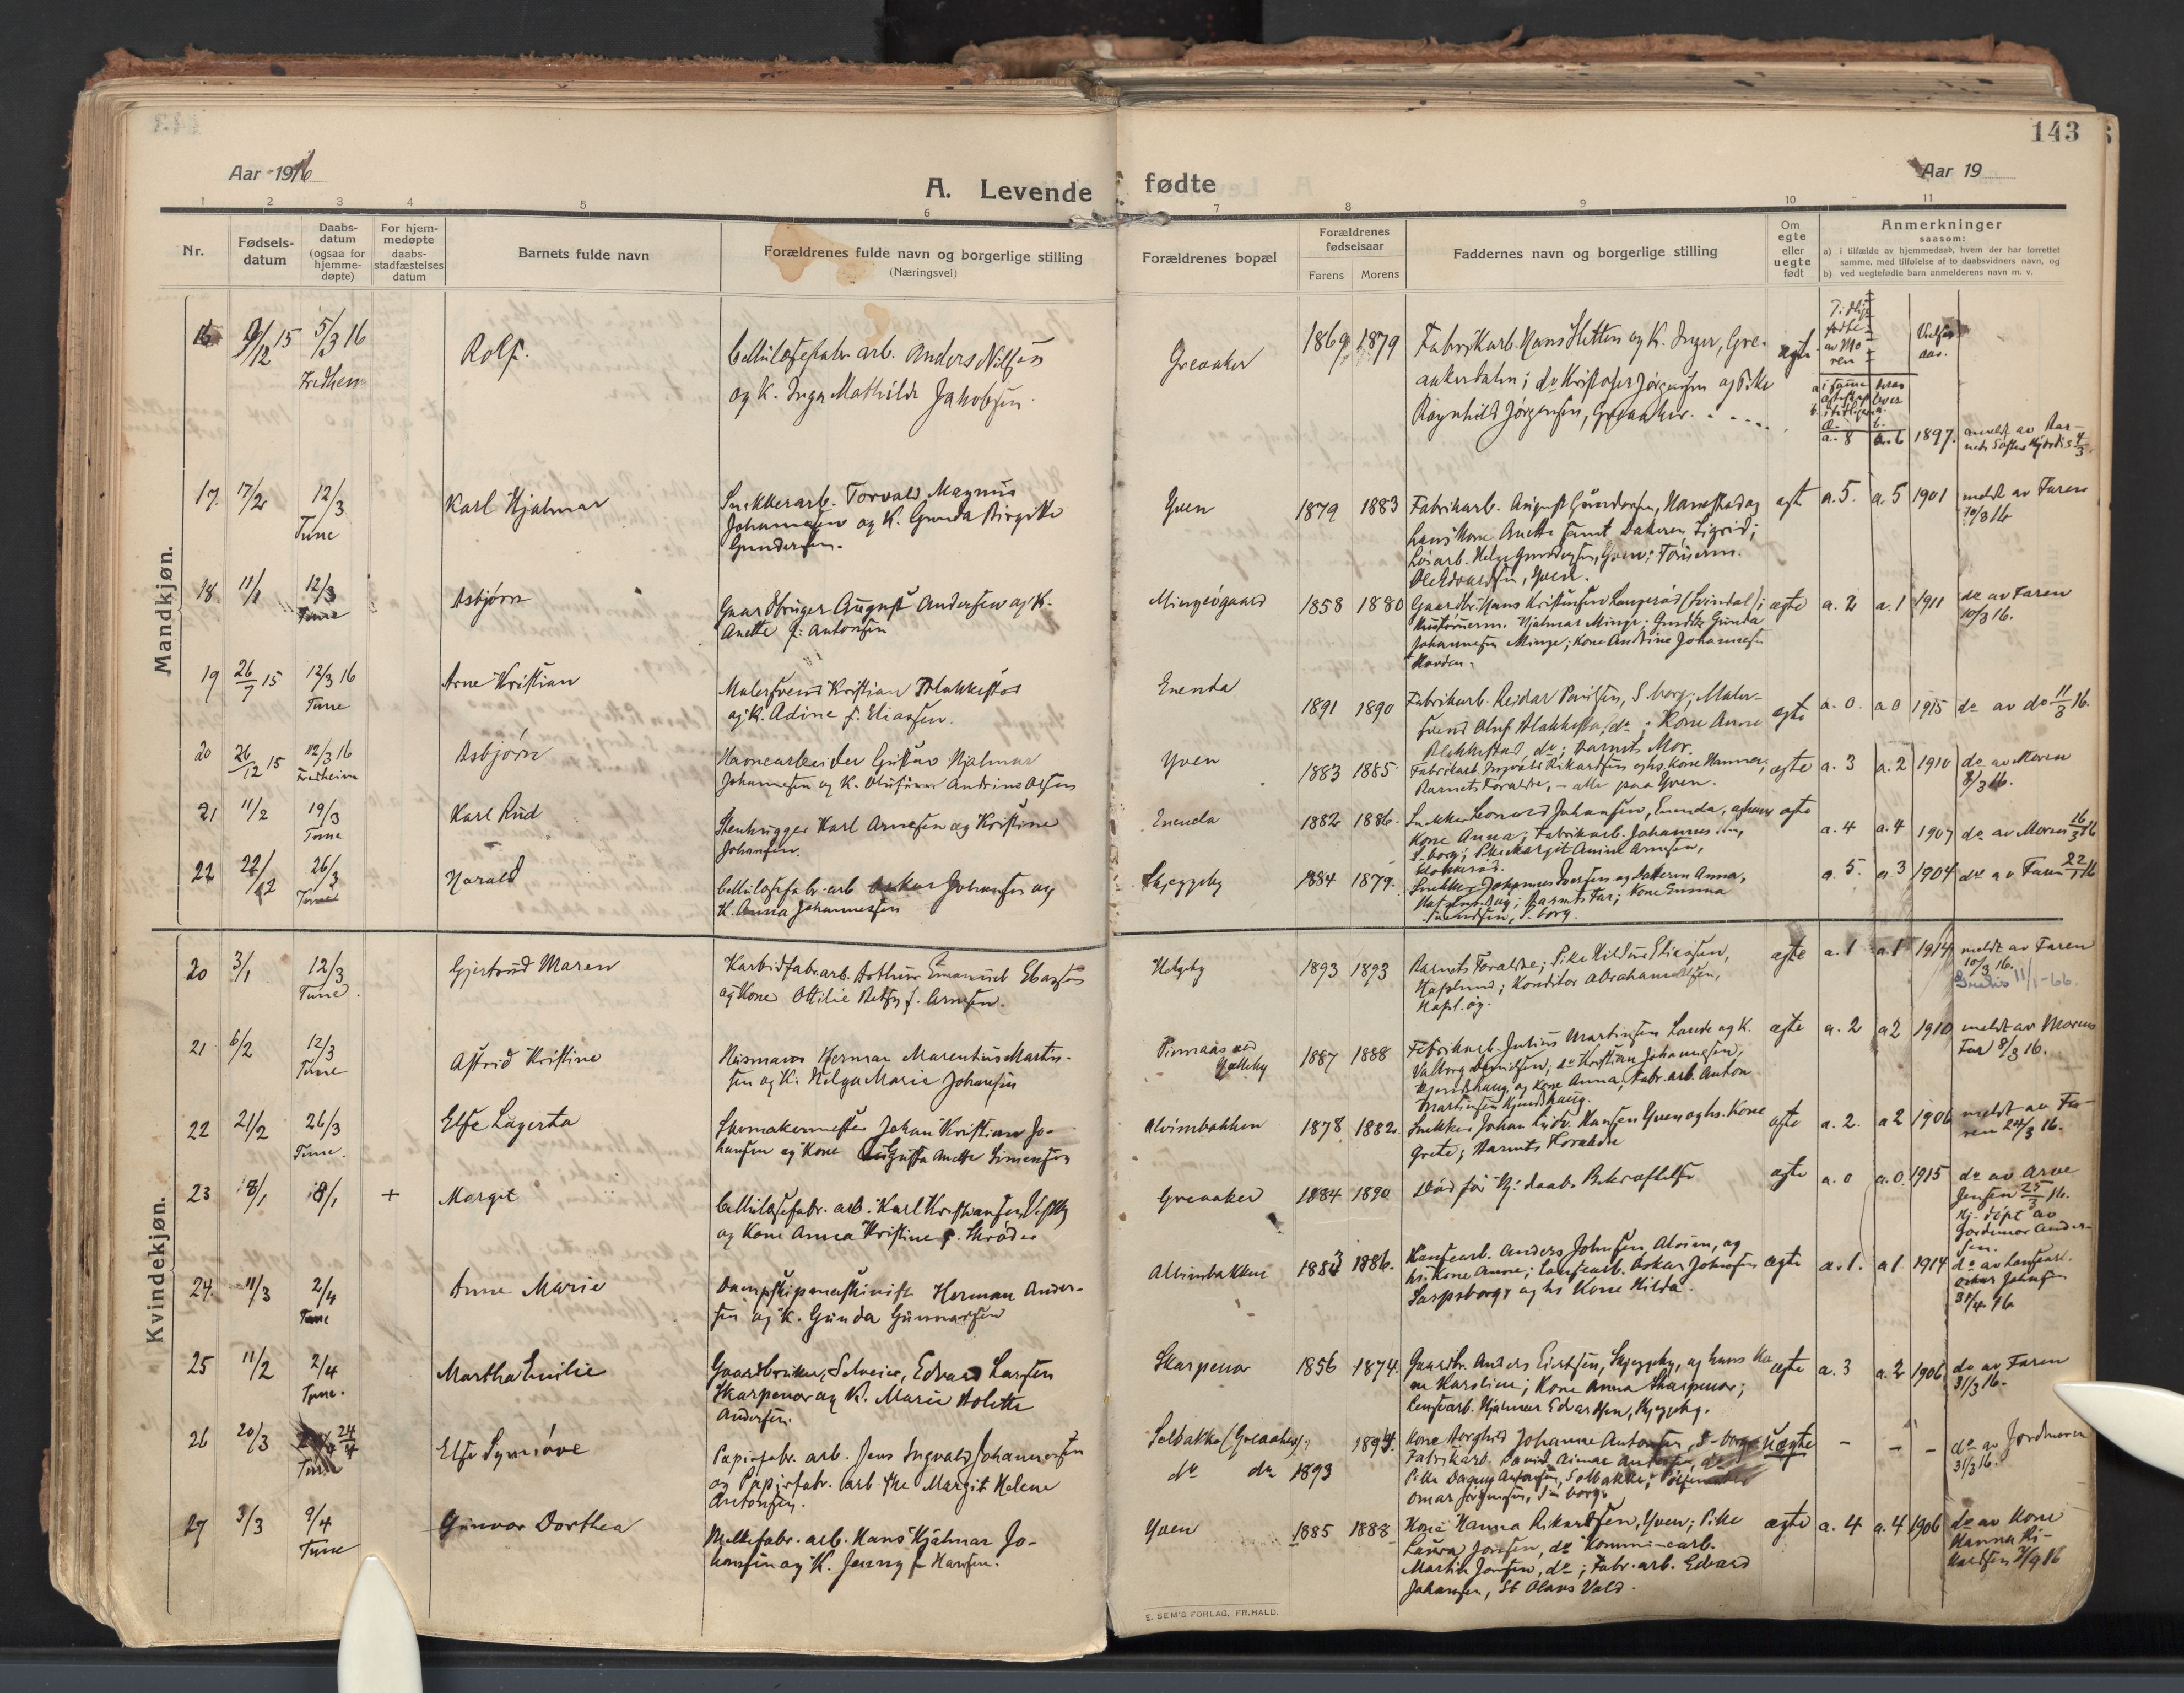 143
Aar 1916
A. Levende fødte
Aar 19
1 2 3 4 5 6 7 8 9 10 11
Nr.
Fødsels-
datum
Daabs-
datum
(ogsaa for
hjemme-
døpte)
For hjem-
medøpte
daabs-
stadfæstelses
datum
Barnets fulde navn
Forældrenes fulde navn og borgerlige stilling
(Næringsvei)
Forældrenes bopæl
Forældrenes
fødselsaar
Farens Morens
Faddernes navn og borgerlige stilling
Om
egte
eller
uegte
født
Anmerkninger
saasom:
a) i tilfælde av hjemmedaab, hvem der har forrettet
samme, med tilføielse af to daabsvidners navn, og
b) ved uegtefødte barn anmelderens navn m. v.
Mandkjøn.
16 9/12 15 5/3 16
Rolf.
Cellulosefabr. arb. Anders Nilsen
og K. Inga Mathilde Jakobsen.
Greaaker
1869 1879
Fabrikarb. Hans Sletten og K. Inger, Gre-
aakerdalen; do Kristofer Jørgensen og Pike
Ragnhild Jørgensen, Greaaker.
egte
a. 8 a. 6 1897.
17. 17/2 12/3
Tune
Karl Hjalmar
Snekkerarb. Torvald Magnus
Johannesen og K. Gunda Birgitte
Gundersen.
Yven
1879 1883
Fabrikarb. August Gundersen, Hannestad og
hans Kone Anette samt Datteren Sigrid;
Løsarb. Helge Gundersen, Yven;
Yven.
egt a. 5. a. 5 1901
meldt av Faren
10/3 16
18. 11/1 12/3
Tune
Asbjørn
Gaardbruger August Andersen og K.
Anette f. Antonsen
Mingeøgaard
1858 1880
Gaardbr. Hans Kristensen Langerød (Svindal);
Hjalmar Minge; Gunda
Johannesen Minge; Kone Andrine Johannesen
egte a. 2 a. 1 1911
do av Faren
10/3 16.
19 26/7 15 12/3 16
Tune
Arne Kristian
Malersvend Kristian Blakkestad
og K. Adine f. Eliassen.
Enenda
1891 1890
Fabrikarb. Reidar Paulsen, S borg; Maler-
svend Oluf Blakkestad, do; Kone Anne
Blakkestad, do; Barnets Mor.
egte a. 0. a 0 1915 do av do 11/3 16.
20 26/12 15 12/3 16
Fredheim
Asbjørn
Havnearbeider Gustav Hjalmar
Johannesen og K. Andrine Olsen
Yven
1883 1885
Fabrikarb. Rikardsen og hs. Kone Hanna;
Barnets Forældre, – alle paa Yven.
egte a. 3 a. 2 1910
do av Moren
8/3 16.
21 11/2 19/3
Tune
Karl Rud
Stenhugger Karl Arnesen og Kristine
Johansen.
Enenda
1882 1886.
Snekker Leonard Johansen, Enenda, og hans
Kone Anna; Fabrikarb. Johannes
S-borg; Pike Margit Amine Arnesen,
egte a. 4 a. 4 1907 do av Moren 16/3 16
22 22/12 26/3
Tune
Harald
Cellulosefabr. arb Oskar Johansen og
K. Anna Johannessen
Skjeggeby
1884 1879.
Snekker Johannes Iversen og Datteren Anna,
Hafslund; Barnets Far; Kone Emma
S. borg.
a. 5. a 3 1904 do av Faren
Kvindekjøn.
20 3/1 12/3
Tune
Gjertrud Maren
Karbidfab. arb. Arthur Emanuel Eliassen
og Kone Ottilie Betsy f. Arnesen.
Helgeby
1893 1893
Barnets Forældre; Pike Eliassen,
Hafslund; Konditor
egte a. 1 a. 1 1914
meldt av Faren
10/3 16.
11/1-66.
21 6/2 12/3
Tune
Astrid Kristine
Herman Marentius Martin-
sen og K. Helga Marie Johansen
1887 1888
Fabrikarb. Julius Martinsen Lande og K.
Valborg; do Kristian Johannesen,
og Kone Anna, Fabr. arb. Anton
Martinsen
egte a. 2 a 2 1910
meldt av Morens
Far 8/3 16.
22 21/2 26/3
Tune.
Else Lagerta
Skomakermester Johan Kristian Jo-
hansen og Kone Augusta Anette Simensen
Alvimbakken
1878 1882
Snekker Johan Ludv. Hansen Yven og hs. Kone
Grete; Barnets Forældre
egte a. 2. a 2 1906
meldt av Fa-
ren 24/3 16.
23 8/1 8/1 +
Margit
Cellulosefabr. arb. Karl Kristiansen
og Kone Anna Kristine f. Skrøder
Greaaker
1884 1890
Død før Hj: daabs Bekræftelse
egte a. 0 a. 0. 1915
do av Arne
Jensen 25/3 16.
Hj. døpt av
Jordmor Ander-
sen.
24. 11/3 2/4
Tune
Anne Marie
Dampskipsmaskinist Herman Ander-
sen og K. Gunda Gunnarsen
Alvimbakken
1883 1886.
Anders Johnsen, Alvim, og
hs. Kone Anne; Oskar Johnsen
Sarpsborg og hs Kone Hilda.
egte a. 1. a 1 1914
Oskar Johnsen
25 11/2 2/4
Tune.
Martha Emilie
Gaardbruker, Edvard Larsen
Skarpenor og K. Marie Bolette
Andersen.
Skarpenor
1856 1874.
Gaardbr. Anders Eiertsen, Skjeggeby, og hans Ko-
ne Karoline; Kone Anna Skarpenor;
Hjalmar Edvardsen, Skjeggeby.
egte a. 3 a. 2 1906
do av Faren
31/3 16.
26 20/3 24/4
Tune
Else Synnøve
Papirfabr. arb. Jens Ingvald Johannesen
og Papirfabr. arb. ske Margit Helene
Antonsen.
Solbakke (Greaaker);
do do
1893 1894.
Kone Borghild Johanne Antonsen, S-borg
Fabrikarb.
Pike Dagny Antonsen, Solbakke;
uegte – – –
do av Jordmoren
31/3 16.
27 3/3 9/4
Tune
Gunvor Dorthea
Melkefabr. arb. Hans Hjalmar Jo-
hansen og K. Jenny f Hansen.
Yven
1885 1888
Kone Hanna Rikardsen, Yven; Pike
Laura Jonsen, do Kommunearb.
Martin Jonsen, do; Fabr. arb. Edvard
Johansen, St Olavs Vold.
egte a. 4 a. 4 1906
do av Kone
Hanna Ri-
kardsen
E. SEM'S FORLAG, FR.HALD.